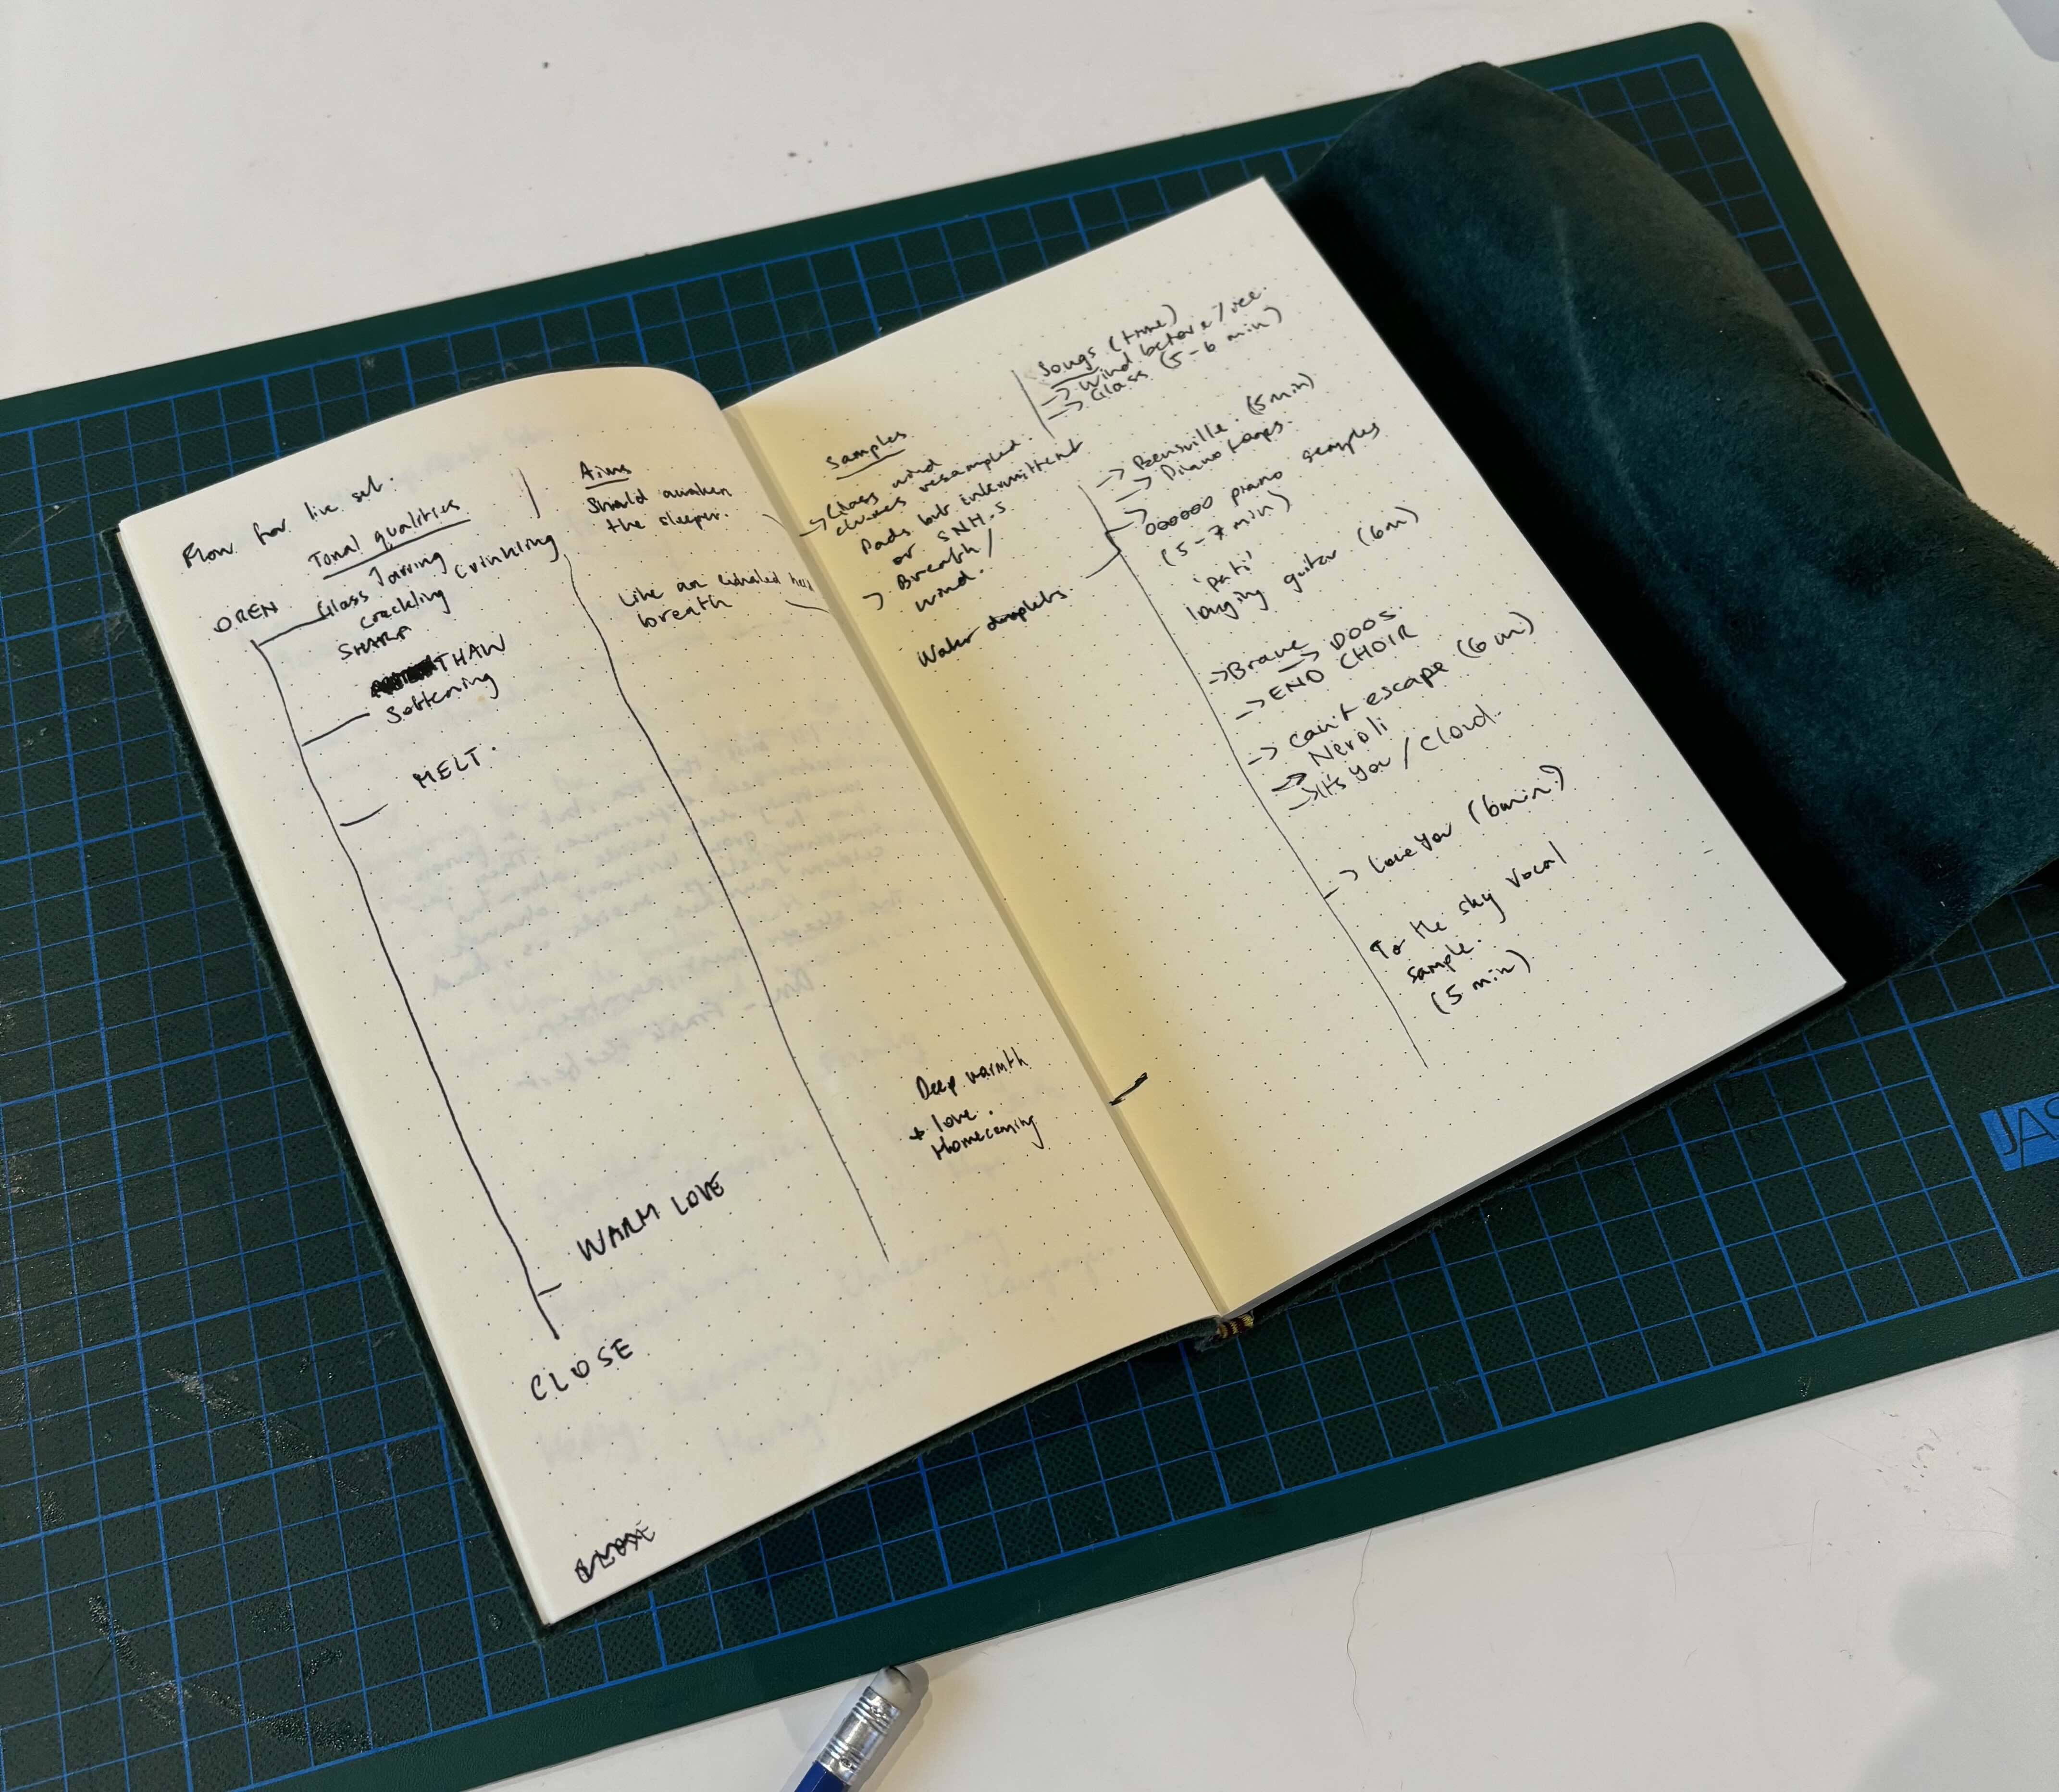 Flow for live set.
Tonal qualities
OPEN
Jarring
Glass crinkling
crackling
SHARP
THAW
Softening
MELT.
WARM LOVE
CLOSE
Aims
Should awaken
the sleeper.
Like an exhaled hot
breath
Deep warmth
+ love.
Homecoming
Samples
-> Glass wind
chimes resampled.
Pads but intermittent
or SNH-S
-> Breath/
wind.
Water droplets.
Songs (time)
-> Wind before / ice.
-> Glass (5-6 min)
-> (5min)
-> Piano Loops.
-> oooooo piano samples
(5-7 min)
'pati'
longing guitar (6m)
-> Brave -> DOOS.
-> END CHOIR
-> can't escape (6m)
-> Neroli
-> It's you / Cloud.
-> Love you (6min)
To the sky vocal
sample.
(5 min)
JAS